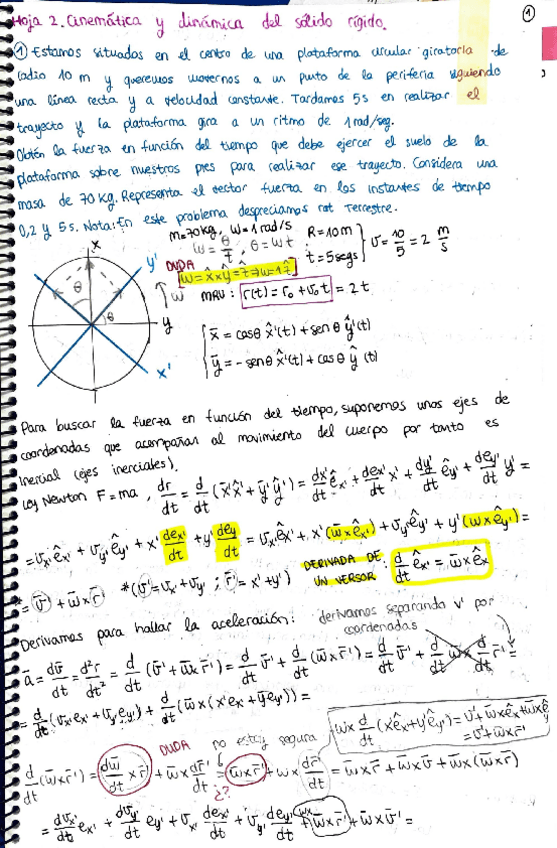 Hoja 2. Cinemática y dinámica del sólido rígido.
①
① Estamos situados en el centro de una plataforma circular giratoria de
radio 10 m y queremos movernos a un punto de la periferia siguiendo
una línea recta y a velocidad constante. Tardamos 5s en realizar el
trayecto y la plataforma gira a un ritmo de 1 rad/seg.
Obtén la fuerza en función del tiempo que debe ejercer el suelo de la
plataforma sobre nuestros pies para realizar ese trayecto. Considera una
masa de 70 Kg. Representa el vector fuerza en los instantes de tiempo
0,2 y 5s. Nota: En este problema despreciamos rot Terrestre.
m=70kg, ω=1 rad/s R=10m
ω = θ/t, θ=ωt t=5segs } v = 10/5 = 2 m/s
DUDA
x
y'
θ
θ
ω
y
x'
MRU: r(t) = r₀ + v₀t = 2t
x̄ = cosθ x̂'(t) + senθ ŷ'(t)
ȳ = -senθ x̂'(t) + cosθ ŷ'(t)
Para buscar la fuerza en función del tiempo, suponemos unos ejes de
coordenadas que acompañan al movimiento del cuerpo por tanto es
inercial (ejes inerciales).
Ley Newton F=ma, dr/dt = d/dt (x̄'x̂' + ȳ'ŷ') = dx'/dt êx' + dex'/dt x' + dy'/dt êy' + dey'/dt y' =
= vx' êx' + vy' êy' + x' dex'/dt + y' dey/dt = vx' êx' + x'(ω̄ x êx') + vy' êy' + y'(ω x êy') =
= v̄' + ω̄ x r̄' *(v' = vx' + vy' ; r̄' = x' + y')
DERIVADA DE
UN VERSOR: d/dt êx' = ω̄ x êx
Derivamos para hallar la aceleración: derivamos separando v' por
coordenadas
ā = dv̄/dt = d²r̄/dt² = d/dt (v̄' + ω̄xr̄') = d/dt v̄' + d/dt (ω̄xr̄') = d/dt v̄' + d/dt ω̄ x d/dt r̄' =
= d/dt (vx' ex' + vy' ey') + d/dt (ω̄x(x'ex' + y'ey')) =
DUDA no estoy segura
¿?
d/dt (ω̄xr̄') = dω̄/dt x r̄' + ω̄x dr̄'/dt = ω̄xr̄' + ωx dr̄'/dt = ω̄xr̄' + ω̄xv̄ + ω̄x(ω̄xr̄)
= dvx'/dt ex' + dvy'/dt ey' + vx' dex'/dt + vy' dey'/dt + ω̄xr̄' + ω̄xv̄' =